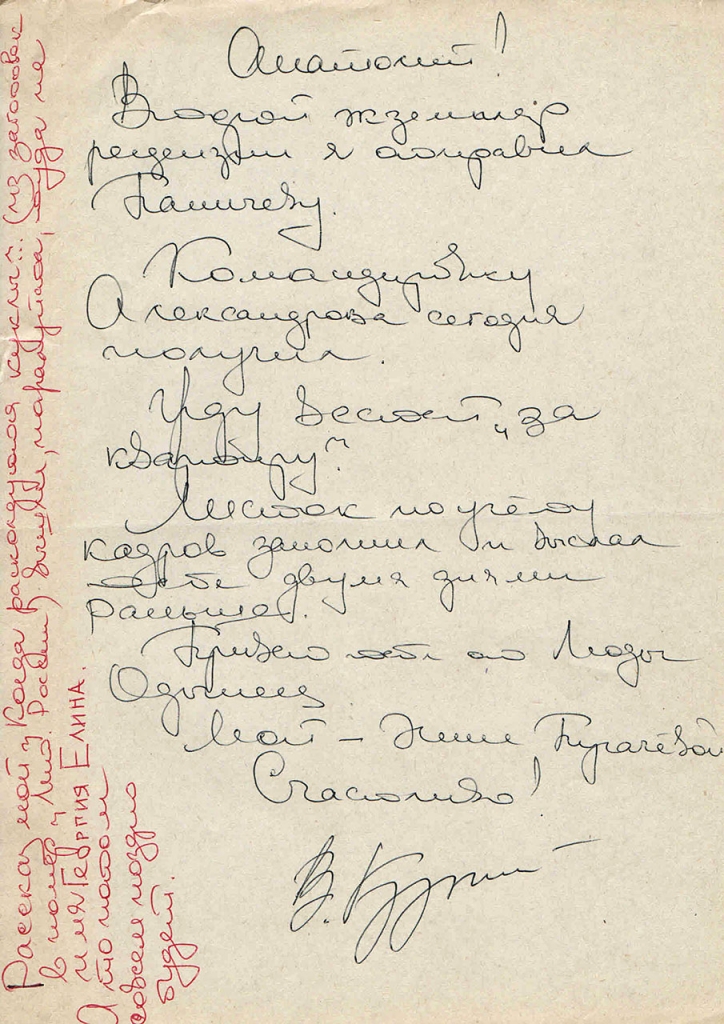 Анатолий!
Второй экземпляр
рецензии я отправил
Паничеву.
Командировку
Александрова сегодня
получил.
Иду весной „за
квартиру"?
Листок по учёту
кадров заполнил и выслал
тебе двумя днями
раньше.
Привет тебе от Люды
Одынец.
Мой – Эмме Пугачёвой
Счастливо!
В.
Рассказ мой „Когда расколдуются куклы"... (из заголовок
в номер „ Лит. России",
имя Георгия Елина.
А то потом
совсем поздно
будет.